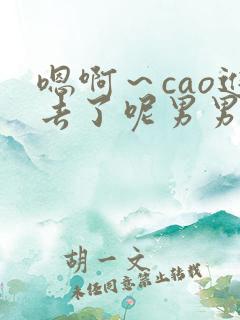 嗯啊～cao进
去了呢男男
胡一文
未经同意禁止转载